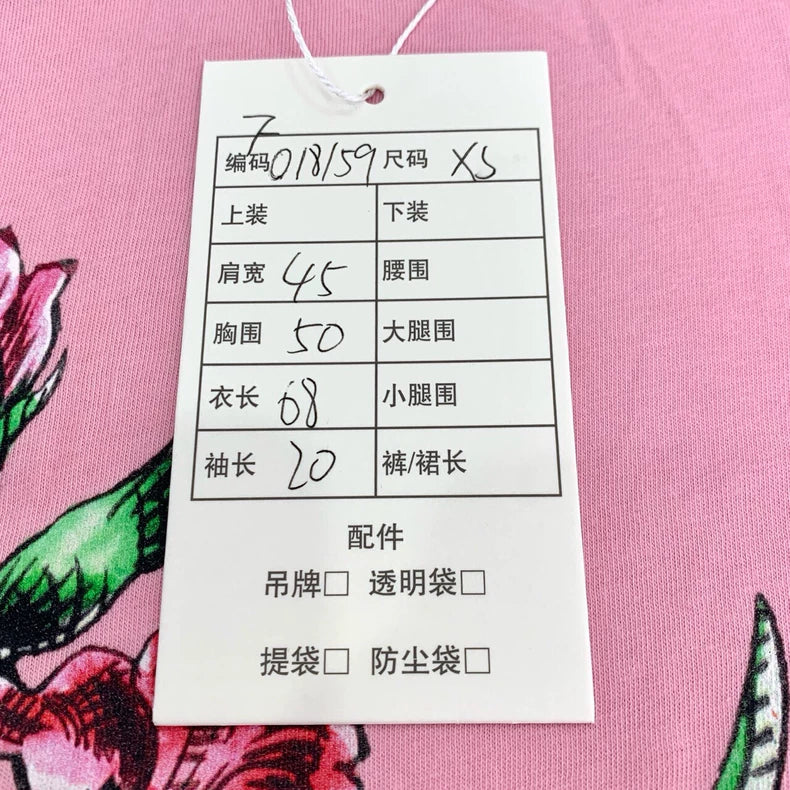 7
编码018159 尺码 XS
上装 下装
肩宽 45 腰围
胸围 50 大腿围
衣长 68 小腿围
袖长 20 裤/裙长
配件
吊牌□ 透明袋□
提袋□ 防尘袋□